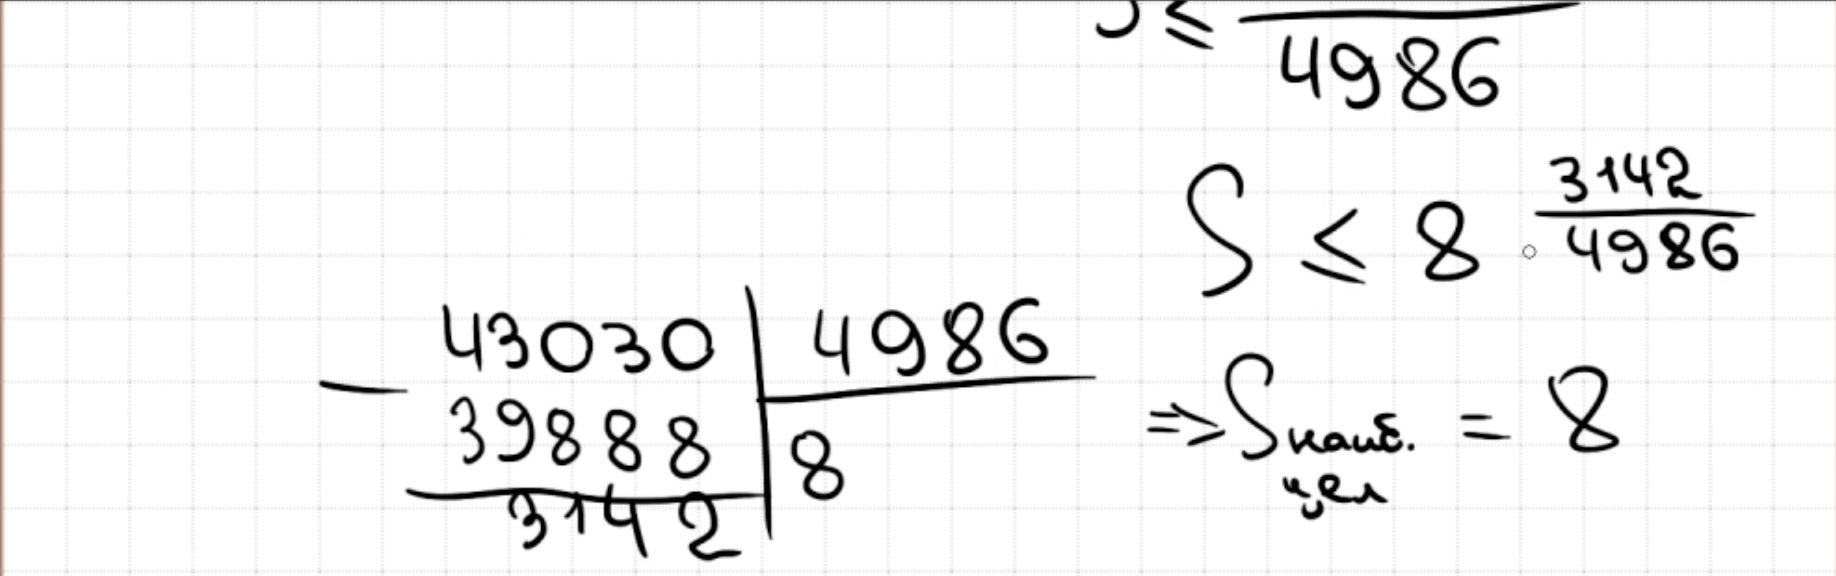 S ≤ ―
4986
S ≤ 8 3142/4986
43030 | 4986
− 39888 | 8
3142
⇒ S наиб. = 8
цел